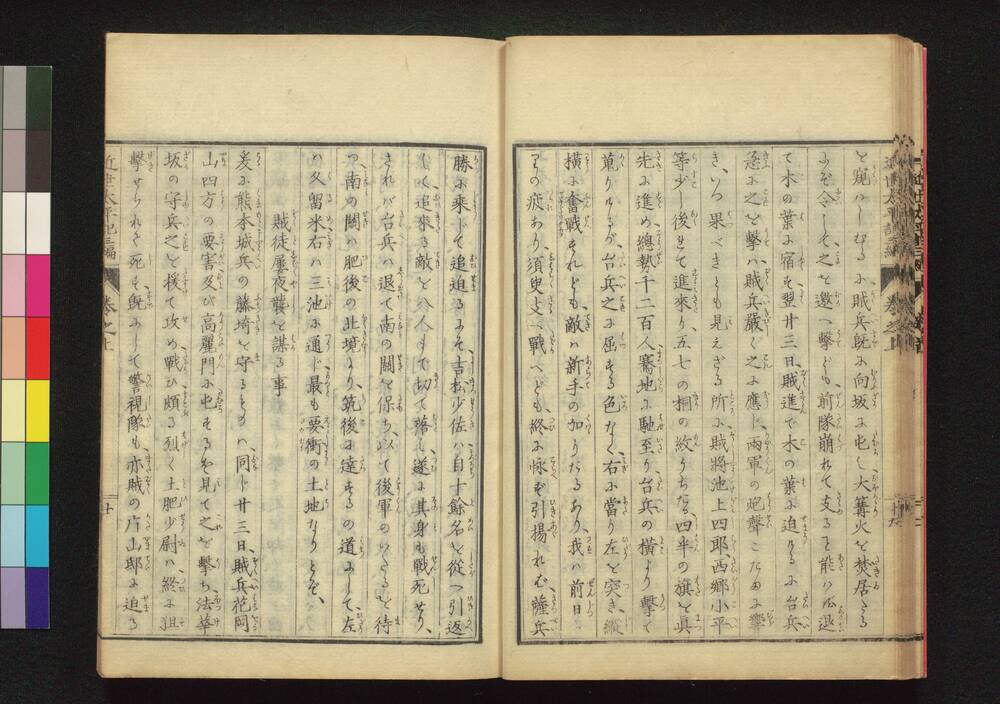 を窺ハしむるに賊兵既に向坂に屯し大篝火を焚居たる
にぞ令して之を邀へ撃ども前隊崩れて支る能ハず退
て木の葉に宿す翌廿三日賊進で木の葉に迫りけるに台兵
途に之を撃ハ賊兵嚴く之に應じ両軍の炮聲こたまに響
き、いつ果べきとも見えざる所に賊將池上四郎、西郷小平
等少し後れて進來り五七の桐の紋うちたる四半の旗を眞
先に進め總勢千二百人驀地に馳至り台兵の横より撃て
蒐りけるが台兵之に屈する色なく右に當り左を突き縦
横に奮戰すれども敵ハ新手の加りたるあり我ハ前日よ
りの疲あり須臾支へ戰へども終に怺ず引揚れば薩兵
勝に乘じて追迫るにそ吉松少佐ハ自十餘名を從へ引返
して追來る敵を八人まで切て落し遂に其身も戰死せり、
されバ台兵ハ退て南の關を保ち以て後軍の來たるを待
つ南の關ハ肥後の北境より筑後に達するの道にして左
ハ久留米右ハ三池に通じ最も要衝の土地なりとぞ、
賊徒屢夜襲を謀る事
爰に熊本城兵の藤﨑を守るものハ同じ廿三日賊兵花阿
山四方の要害及び高麗門に屯するを見て之を撃ち法華
坂の守兵之を援て攻め戰ひ頗る烈く土肥少尉ハ終に狙
撃せられて死す既にして警視隊も亦賊の片山邸に迫る
近世太平記三編 巻之上 廿